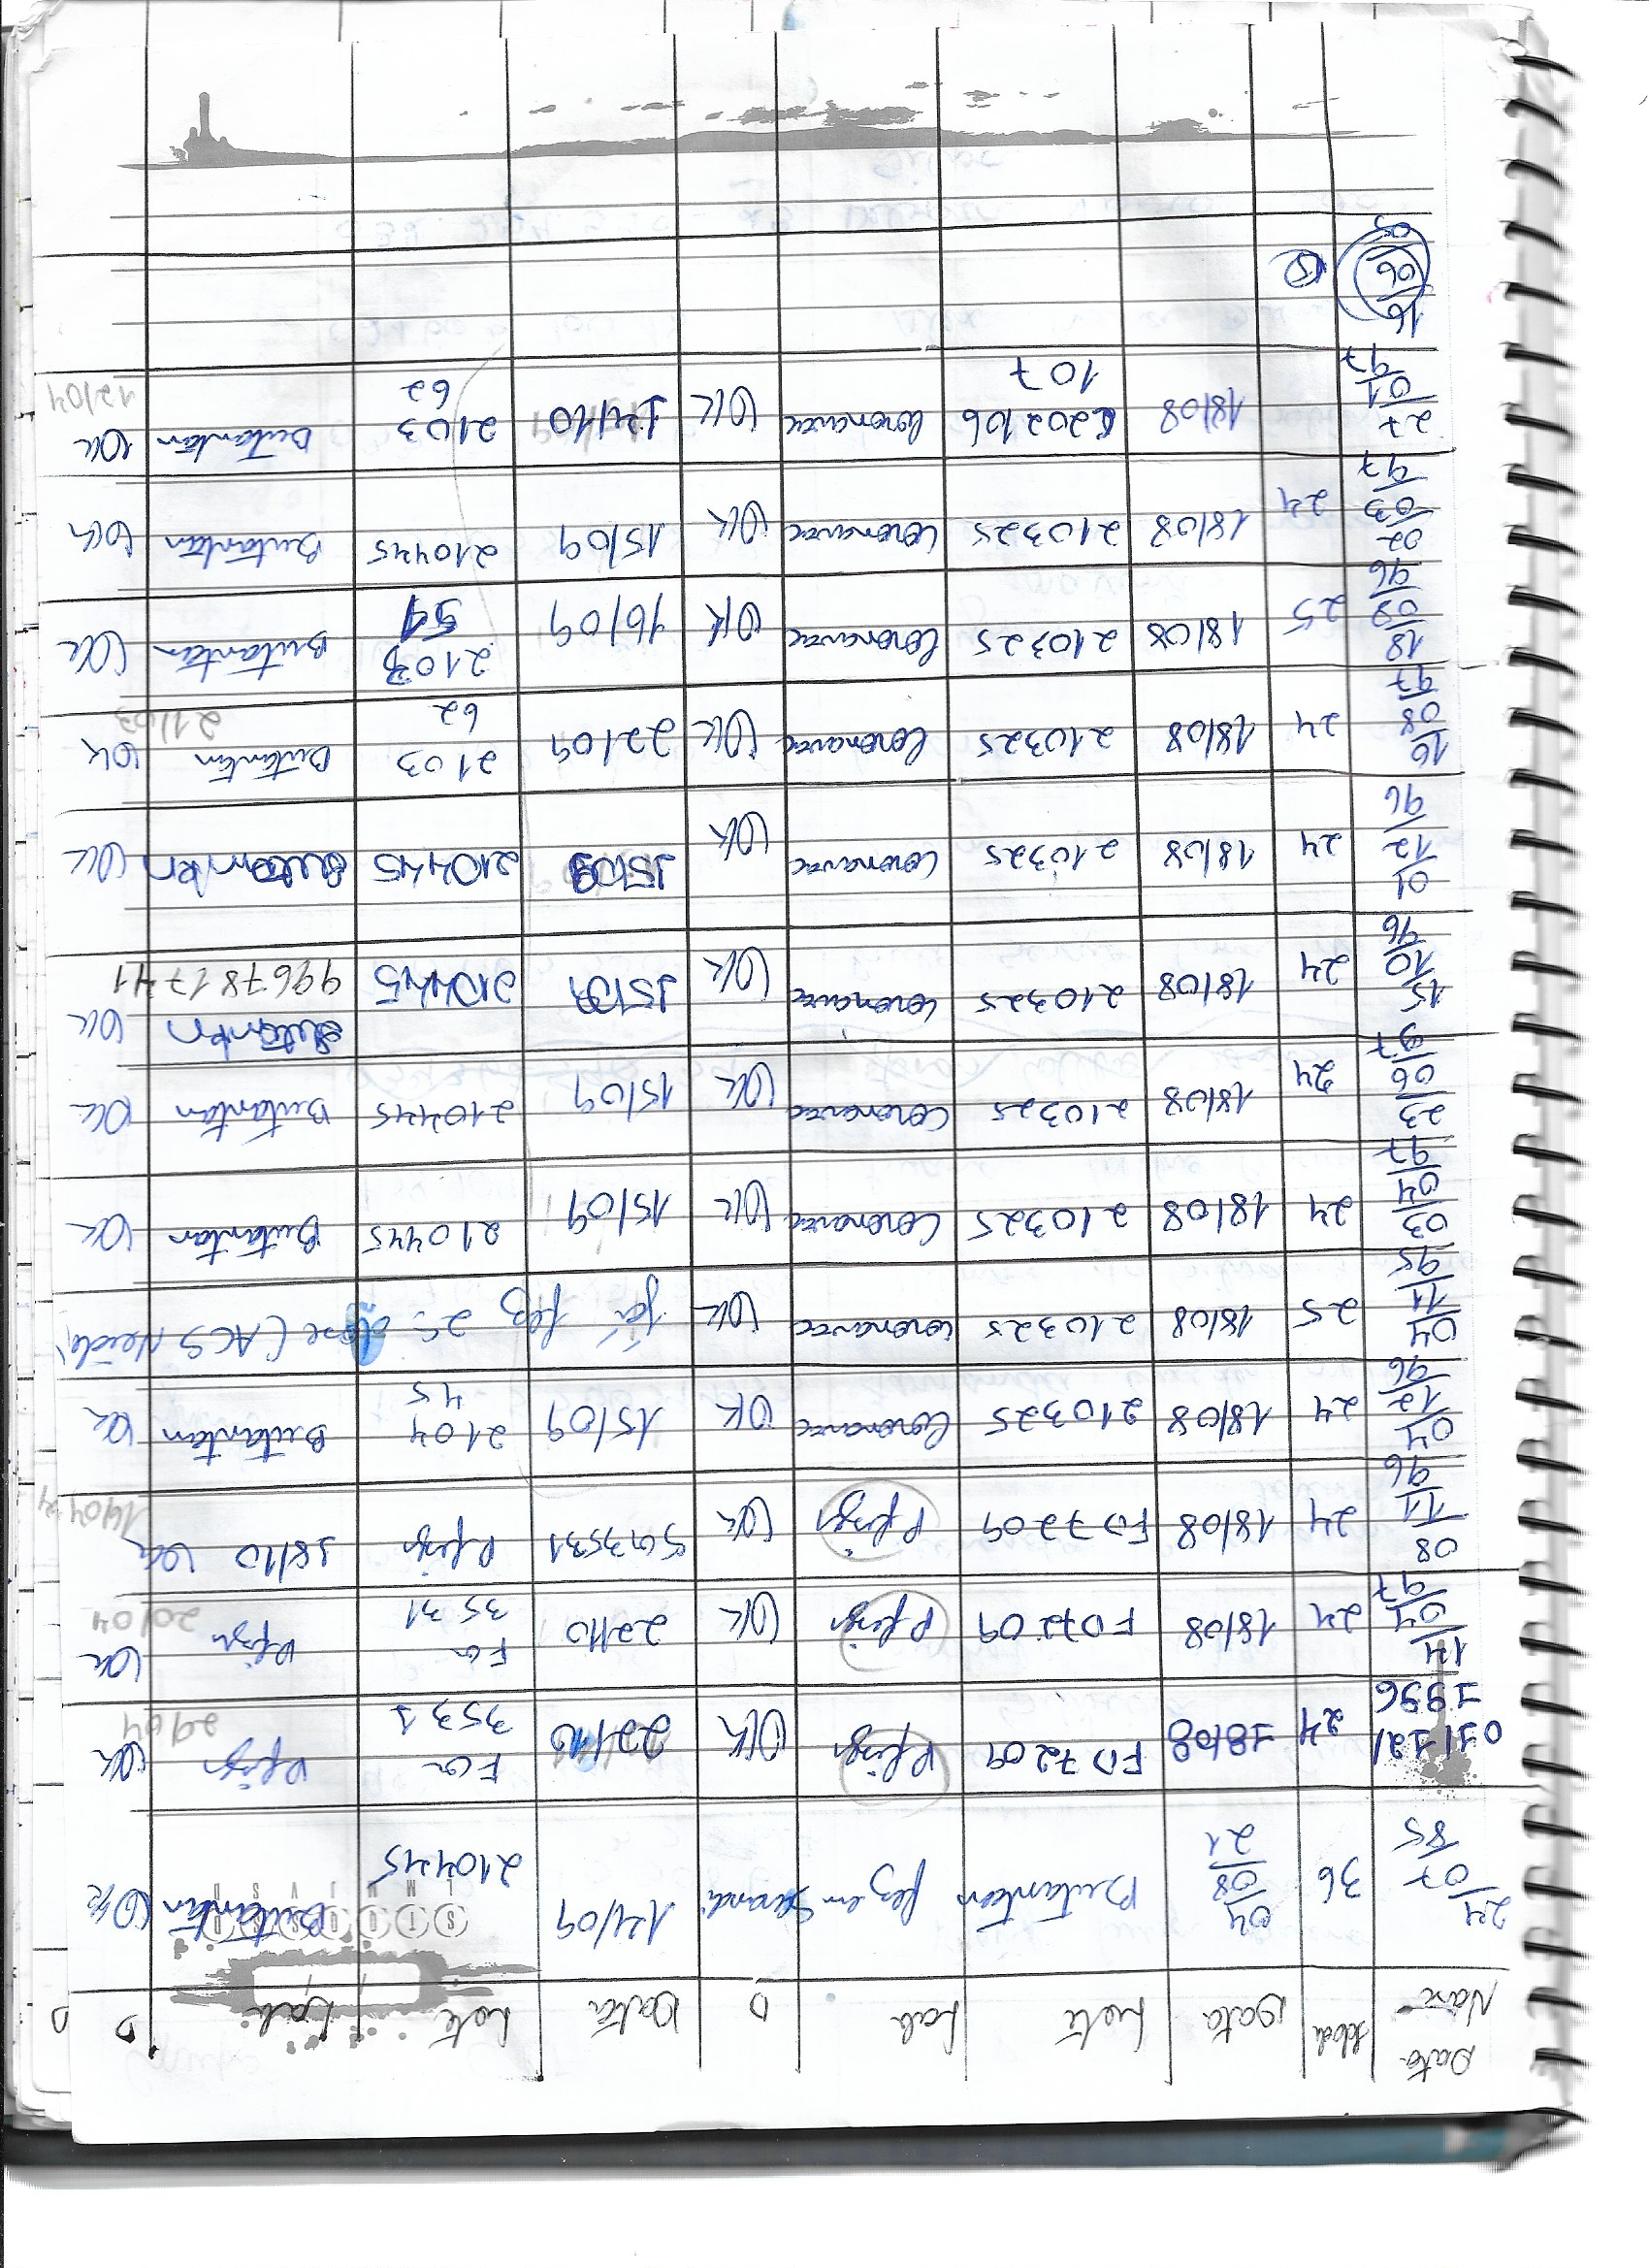 Data Nasc Idade Data Lote Lab D Data Lote Lab D D
24/07/85 36 04/08/21 Butantan fez em 14/09 210445 Butantan Ok
S T Q Q S S D
L M M J V S D
01/12/1996 24 18/08 FD7209 Pfizer OK 22/10 FG 3531 Pfizer Ok
14/04/97 24 18/08 FD7209 Pfizer OK 22/10 FG 3531 Pfizer Ok 20/04
08/11/96 24 18/08 FD7209 Pfizer OK SG3531 Pfizer 18/10 Ok
04/12/96 24 18/08 210325 Coronavac OK 15/09 2104 45 Butantan Ok
04/11/95 25 18/08 210325 Coronavac OK já fez 2ª dose (ACS Neide)
03/04/97 24 18/08 210325 Coronavac OK 15/09 210445 Butantan Ok
23/06/97 24 18/08 210325 Coronavac OK 15/09 210445 Butantan Ok
15/10/96 24 18/08 210325 Coronavac OK 15/09 210445 Butantan Ok
996781741
01/12/96 24 18/08 210325 Coronavac OK 15/09 210445 Butantan Ok
16/08/97 24 18/08 210325 Coronavac OK 22/09 2103 62 Butantan Ok 21/03
18/09/96 25 18/08 210325 Coronavac OK 16/09 2103 54 Butantan Ok
02/03/97 24 18/08 210325 Coronavac OK 15/09 210445 Butantan Ok
27/01/97 18/08 C202106 107 Coronavac OK 14/10 2103 62 Butantan Ok 12/04
16/06/05